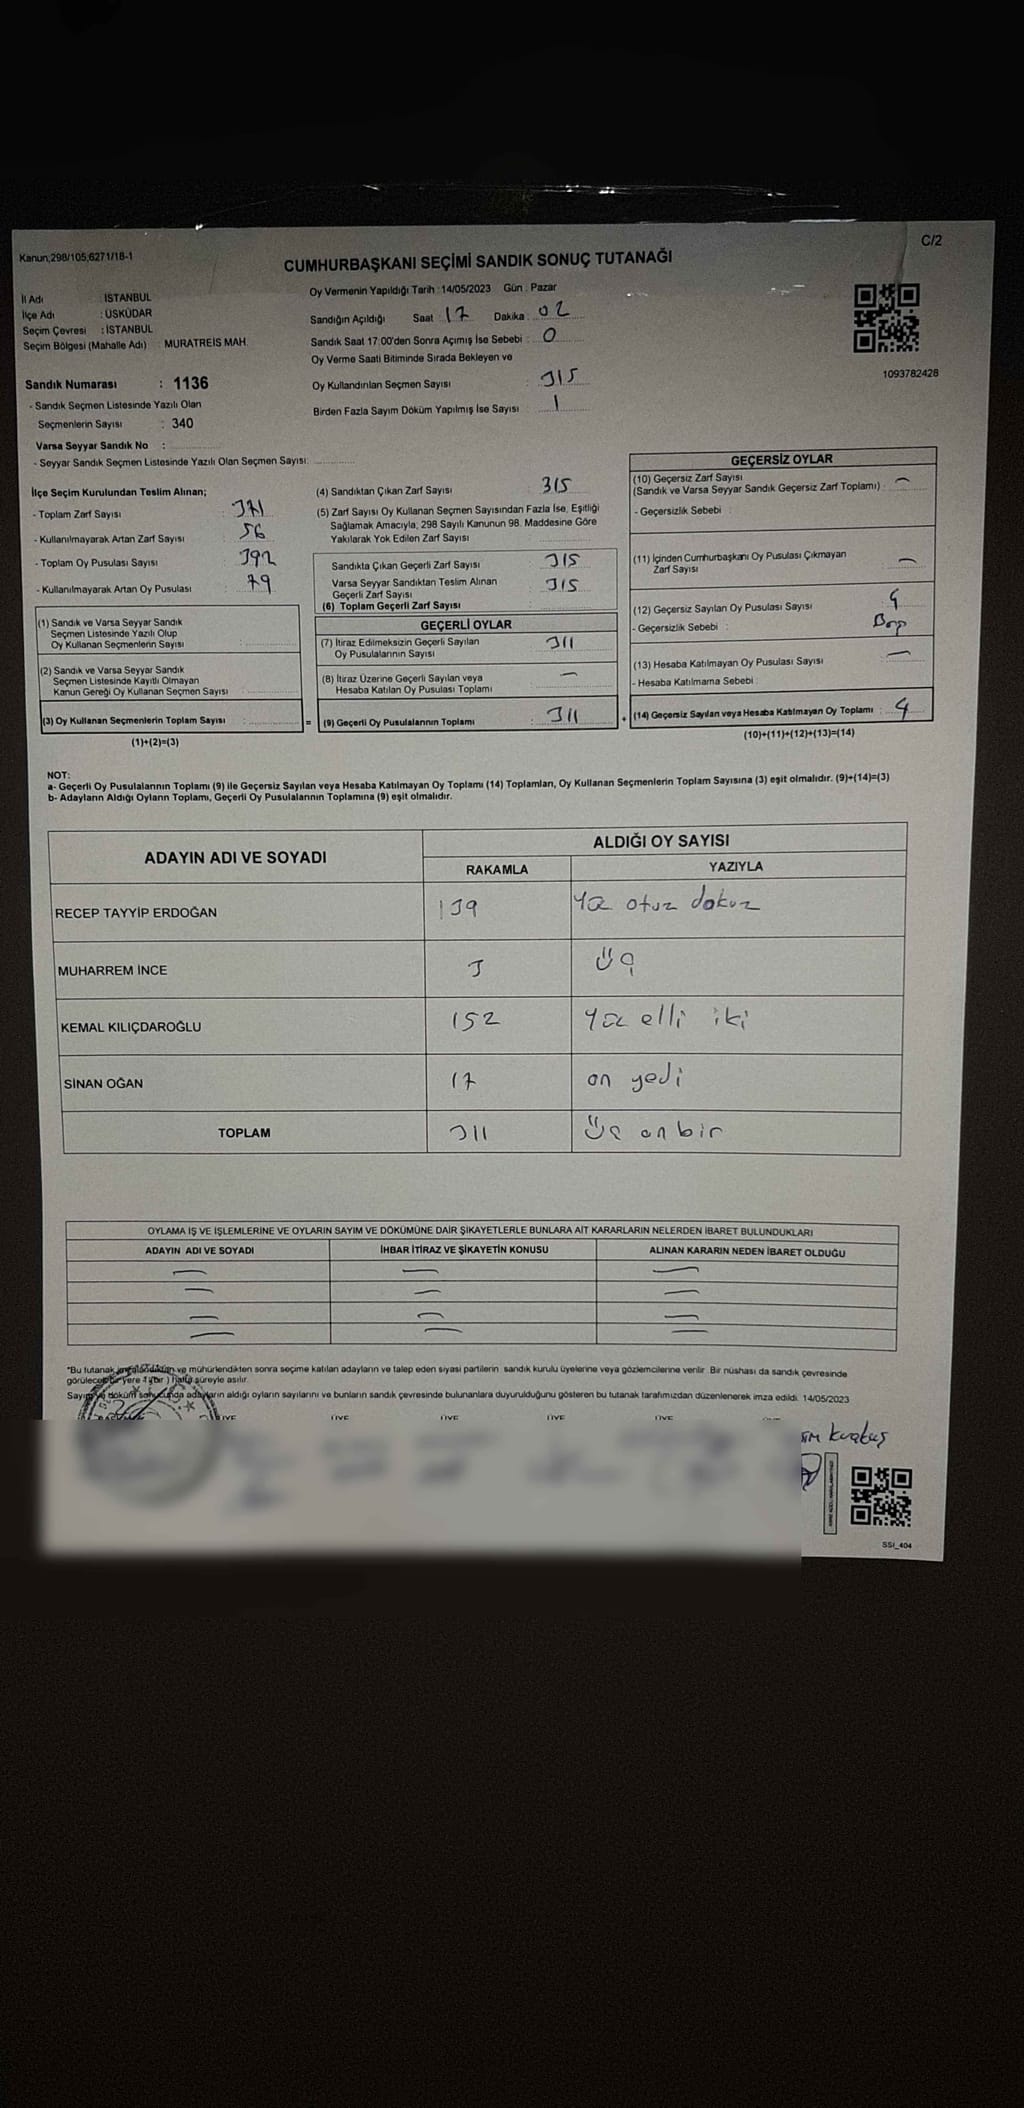 C/2
Kanun;298/105;6271/18-1
CUMHURBAŞKANI SEÇİMİ SANDIK SONUÇ TUTANAĞI
İl Adı : İSTANBUL
İlçe Adı : ÜSKÜDAR
Seçim Çevresi : İSTANBUL
Seçim Bölgesi (Mahalle Adı) : MURATREİS MAH.
Sandık Numarası : 1136
- Sandık Seçmen Listesinde Yazılı Olan
Seçmenlerin Sayısı : 340
Varsa Seyyar Sandık No :
- Seyyar Sandık Seçmen Listesinde Yazılı Olan Seçmen Sayısı:
Oy Vermenin Yapıldığı Tarih :14/05/2023 Gün : Pazar
Sandığın Açıldığı Saat : 17 Dakika : 02
Sandık Saat 17:00'den Sonra Açımış İse Sebebi : 0
Oy Verme Saati Bitiminde Sırada Bekleyen ve
Oy Kullandırılan Seçmen Sayısı : 315
Birden Fazla Sayım Döküm Yapılmış İse Sayısı : 1
1093782428
İlçe Seçim Kurulundan Teslim Alınan;
- Toplam Zarf Sayısı : 371
- Kullanılmayarak Artan Zarf Sayısı : 56
- Toplam Oy Pusulası Sayısı : 392
- Kullanılmayarak Artan Oy Pusulası : 79
(1) Sandık ve Varsa Seyyar Sandık
Seçmen Listesinde Yazılı Olup
Oy Kullanan Seçmenlerin Sayısı :
(2) Sandık ve Varsa Seyyar Sandık
Seçmen Listesinde Kayıtlı Olmayan
Kanun Gereği Oy Kullanan Seçmen Sayısı :
(3) Oy Kullanan Seçmenlerin Toplam Sayısı :
(1)+(2)=(3)
(4) Sandıktan Çıkan Zarf Sayısı : 315
(5) Zarf Sayısı Oy Kullanan Seçmen Sayısından Fazla İse, Eşitliği
Sağlamak Amacıyla, 298 Sayılı Kanunun 98. Maddesine Göre
Yakılarak Yok Edilen Zarf Sayısı :
Sandıkta Çıkan Geçerli Zarf Sayısı : 315
Varsa Seyyar Sandıktan Teslim Alınan : 315
Geçerli Zarf Sayısı
(6) Toplam Geçerli Zarf Sayısı :
GEÇERLİ OYLAR
(7) İtiraz Edilmeksizin Geçerli Sayılan : 311
Oy Pusulalarının Sayısı
(8) İtiraz Üzerine Geçerli Sayılan veya : —
Hesaba Katılan Oy Pusulası Toplamı
= (9) Geçerli Oy Pusulalarının Toplamı : 311
GEÇERSİZ OYLAR
(10) Geçersiz Zarf Sayısı
(Sandık ve Varsa Seyyar Sandık Geçersiz Zarf Toplamı) : —
- Geçersizlik Sebebi :
(11) İçinden Cumhurbaşkanı Oy Pusulası Çıkmayan : —
Zarf Sayısı
(12) Geçersiz Sayılan Oy Pusulası Sayısı : 4
- Geçersizlik Sebebi :
(13) Hesaba Katılmayan Oy Pusulası Sayısı : —
- Hesaba Katılmama Sebebi :
+ (14) Geçersiz Sayılan veya Hesaba Katılmayan Oy Toplamı : 4
(10)+(11)+(12)+(13)=(14)
NOT:
a- Geçerli Oy Pusulalarının Toplamı (9) ile Geçersiz Sayılan veya Hesaba Katılmayan Oy Toplamı (14) Toplamları, Oy Kullanan Seçmenlerin Toplam Sayısına (3) eşit olmalıdır. (9)+(14)=(3)
b- Adayların Aldığı Oyların Toplamı, Geçerli Oy Pusulalarının Toplamına (9) eşit olmalıdır.
ADAYIN ADI VE SOYADI
ALDIĞI OY SAYISI
RAKAMLA YAZIYLA
RECEP TAYYİP ERDOĞAN 139 Yüz otuz dokuz
MUHARREM İNCE 3 üç
KEMAL KILIÇDAROĞLU 152 Yüz elli iki
SİNAN OĞAN 17 on yedi
TOPLAM 311 üç on bir
OYLAMA İŞ VE İŞLEMLERİNE VE OYLARIN SAYIM VE DÖKÜMÜNE DAİR ŞİKAYETLERLE BUNLARA AİT KARARLARIN NELERDEN İBARET BULUNDUKLARI
ADAYIN ADI VE SOYADI İHBAR İTİRAZ VE ŞİKAYETİN KONUSU ALINAN KARARIN NEDEN İBARET OLDUĞU
— — —
— — —
— — —
— — —
*Bu tutanak imzalandıktan ve mühürlendikten sonra seçime katılan adayların ve talep eden siyasi partilerin sandık kurulu üyelerine veya gözlemcilerine verilir. Bir nüshası da sandık çevresinde
görülecek bir yere 1 (bir ) hafta süreyle asılır.
Sayım ve döküm sonucunda adayların aldığı oyların sayılarını ve bunların sandık çevresinde bulunanlara duyurulduğunu gösteren bu tutanak tarafımızdan düzenlenerek imza edildi. 14/05/2023
ÜYE ÜYE ÜYE ÜYE ÜYE
SSI_404